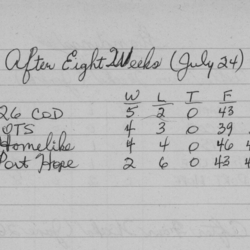 After Eight Weeks (July 24)
W L T F
26 COD 5 2 0 43
OTS 4 3 0 39
Homelike 4 4 0 46
Port Hope 2 6 0 43